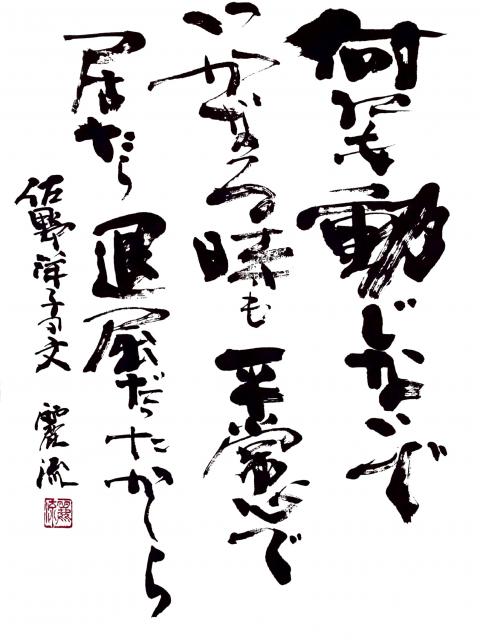 何にも動じないで
いかなる時も平常心で
居たら退屈だったかしら
佐野洋子の文 霞流